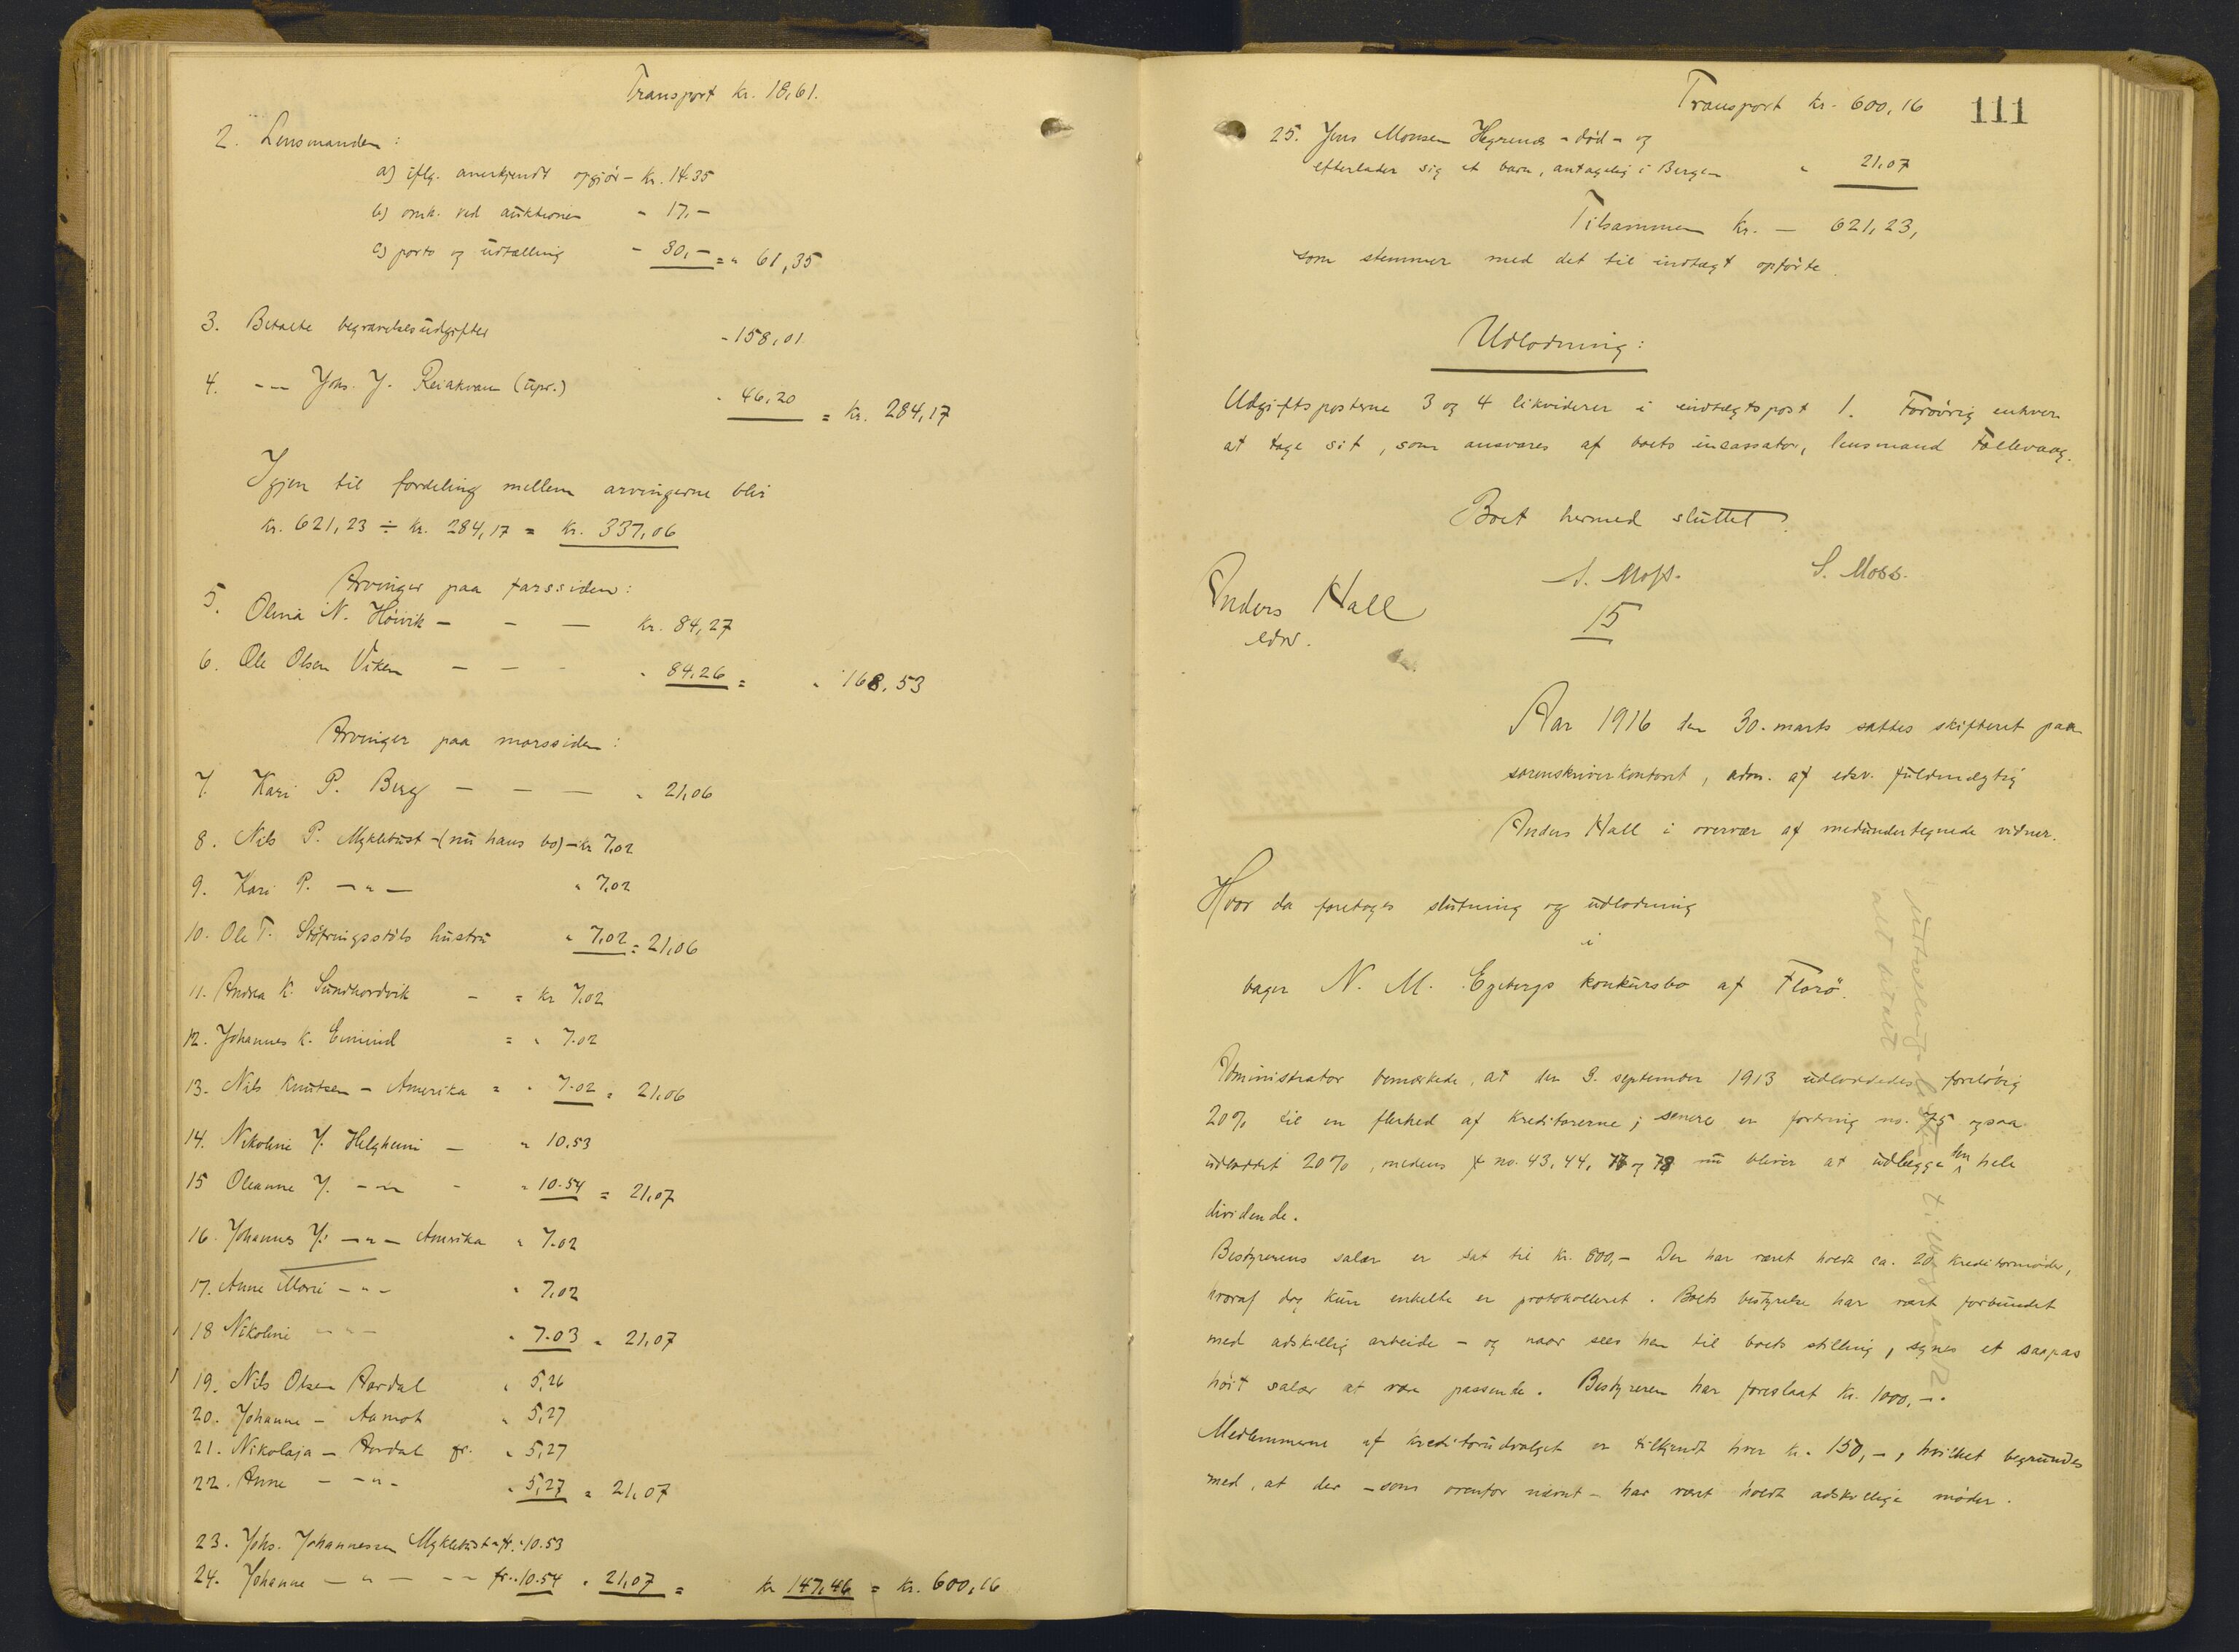 Transport kr. 18,61.
2. Lensmanden:
a) iflg. anerkjendt opgjör - kr. 14.35
b) omk. ved auktionen " 17,-
c) porto og udtælling - 30,- = " 61,35
3. Betalte begravelsesudgifter - 158,01
4. -"- Johs. J. Reiakvam (upr.) " 46,20 = kr. 284,17
Igjen til fordeling mellem arvingerne blir
kr. 621,23 ÷ kr. 284,17 = kr. 337,06
Arvinger paa farssiden:
5. Olina N. Höivik - - - kr. 84,27
6. Ole Olsen Viken - - - " 84,26 = " 168,53
Arvinger paa morssiden:
7. Kari P. Berg - - - " 21,06
8. Nils P. Myklebust - (nu hans bo) - kr 7,02
9. Kari P. -"- " 7,02
10. Ole T. Stöfringsstöls hustru " 7,02 = 21,06
11. Andrea K. Sundhordvik - = kr 7,02
12. Johannes K. Eimind = " 7.02
13. Nils Knutsen - Amerika = " 7.02 = 21,06
14. Nikoline J. Helgheim - " 10.53
15 Oleanne J. -"- - " 10.54 = 21,07
16. Johannes J. -"- Amerika " 7.02
17. Anne Marie -"- " 7,02
18 Nikoline -"- " 7.03 = 21,07
19. Nils Olsen Aardal " 5,26
20. Johanne - Aamot " 5,27
21. Nikolaja - Aardal fr. " 5,27
22. Anne - -"- " 5,27 = 21,07
23. Johs. Johannessen Myklebust - fr. " 10.53
24. Johanne -"- -"- fr. " 10.54 " 21,07 = kr 147,46 = kr. 600,16
Transport kr. 600,16 111
25. Jens Monsen Hegrenæs - död - og
efterlader sig et barn, antagelig i Bergen " 21,07
Tilsammen kr. - 621,23,
som stemmer med det til indtægt opförte.
Udlodning:
Udgiftsposterne 3 og 4 likviderer i indtægtspost 1. Forövrig enhver
at tage sit, som ansvares af boets incassator, lensmand Tallevaag.
Boet hermed sluttet
Anders Hall S. Moss. S. Moss.
edsv. 15
Aar 1916 den 30. marts sattes skifteret paa
sorenskriverkontoret, adm. af edsv. fuldmægtig
Anders Hall i overvær af medundertegnede vidner.
Hvor da foretoges slutning og udlodning
i
bager N. M. Egebergs konkursbo af Florö.
Administrator bemærkede, at den 3. september 1913 udloddedes foreløbig
20% til en flerhed af kreditorerne; senere er fordring no. 75 ogsaa
udloddet 20%, medens f no. 43, 44, 77 og 78 nu bliver at udlægge den hele
dividende.
Bestyrerens salær er sat til kr. 800,- Der har været holdt ca. 20 kreditormöder,
hvoraf dog kun enkelte er protokolleret. Boets bestyrelse har været forbundet
med adskillig arbeide - og naar sees hen til boets stilling, synes et saapas
höit salær at være passende. Bestyreren har foreslaat kr. 1000,-.
Medlemmerne af kreditorudvalget er tilkjendt hver kr. 150,-, hvilket begrundes
med, at der - som ovenfor nævnt - har været holdt adskillige möder.
alt betalt